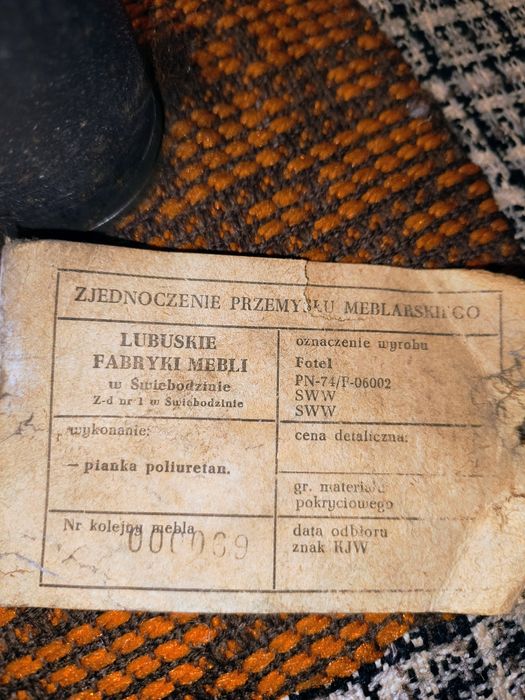 ZJEDNOCZENIE PRZEMYSŁU MEBLARSKIEGO
LUBUSKIE
FABRYKI MEBLI
w Świebodzinie
Z-d nr 1 w Świebodzinie
oznaczenie wyrobu
Fotel
PN-74/F-06002
SWW
SWW
wykonanie:
– pianka poliuretan.
cena detaliczna:
gr. materiału
pokryciowego
Nr kolejny mebla
000069
data odbioru
znak KJW